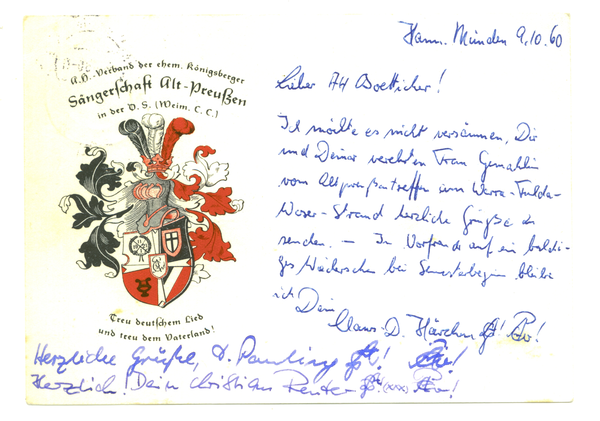 A.H.-Verband der ehem. Königsberger
Sängerschaft Alt-Preußen
in der D. S. (Weim. C. C.)
Treu deutschem Lied
und treu dem Vaterland!
Hann. Münden 9.10.60
Lieber AH Boetticher!
Ich möchte es nicht versäumen, Dir
und Deiner verehrten Frau Gemahlin
vom Altpreußentreffen am Werra-Fulda-
Weser-Strand herzliche Grüße zu
senden. – In Vorfreude auf ein baldi-
ges Wiedersehen bei Semesterbeginn bleibe
ich Dein
Claus-D.
Herzliche Grüße,
Herzlich! Dein Christian Reuter (xxx)